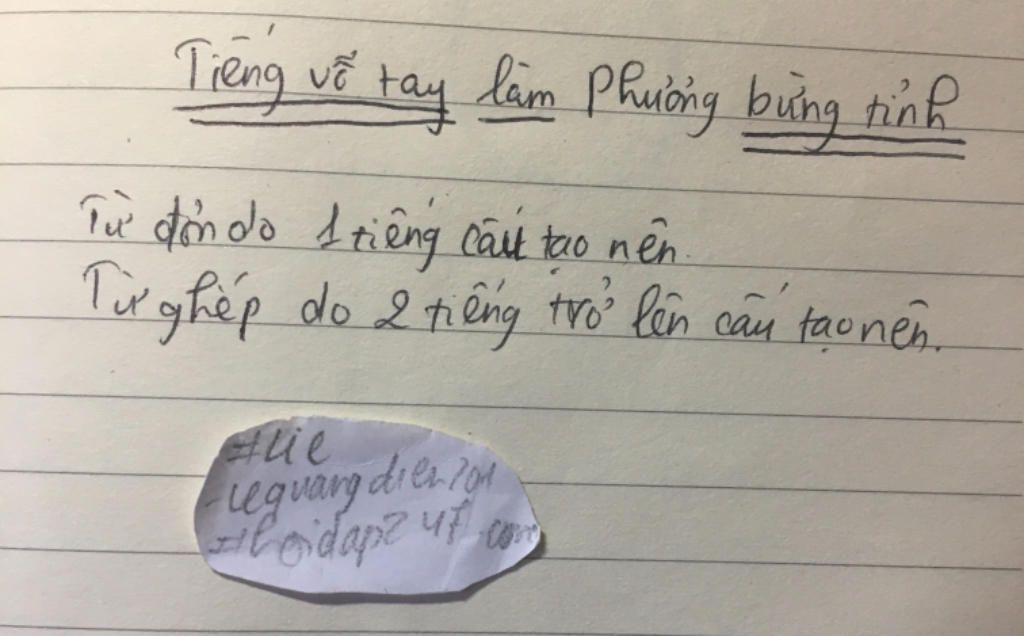 Tiếng vỗ tay làm Phưởng bừng tỉnh
Từ đơn do 1 tiếng cấu tạo nên.
Từ ghép do 2 tiếng trở lên cấu tạo nên.
lequangdien201